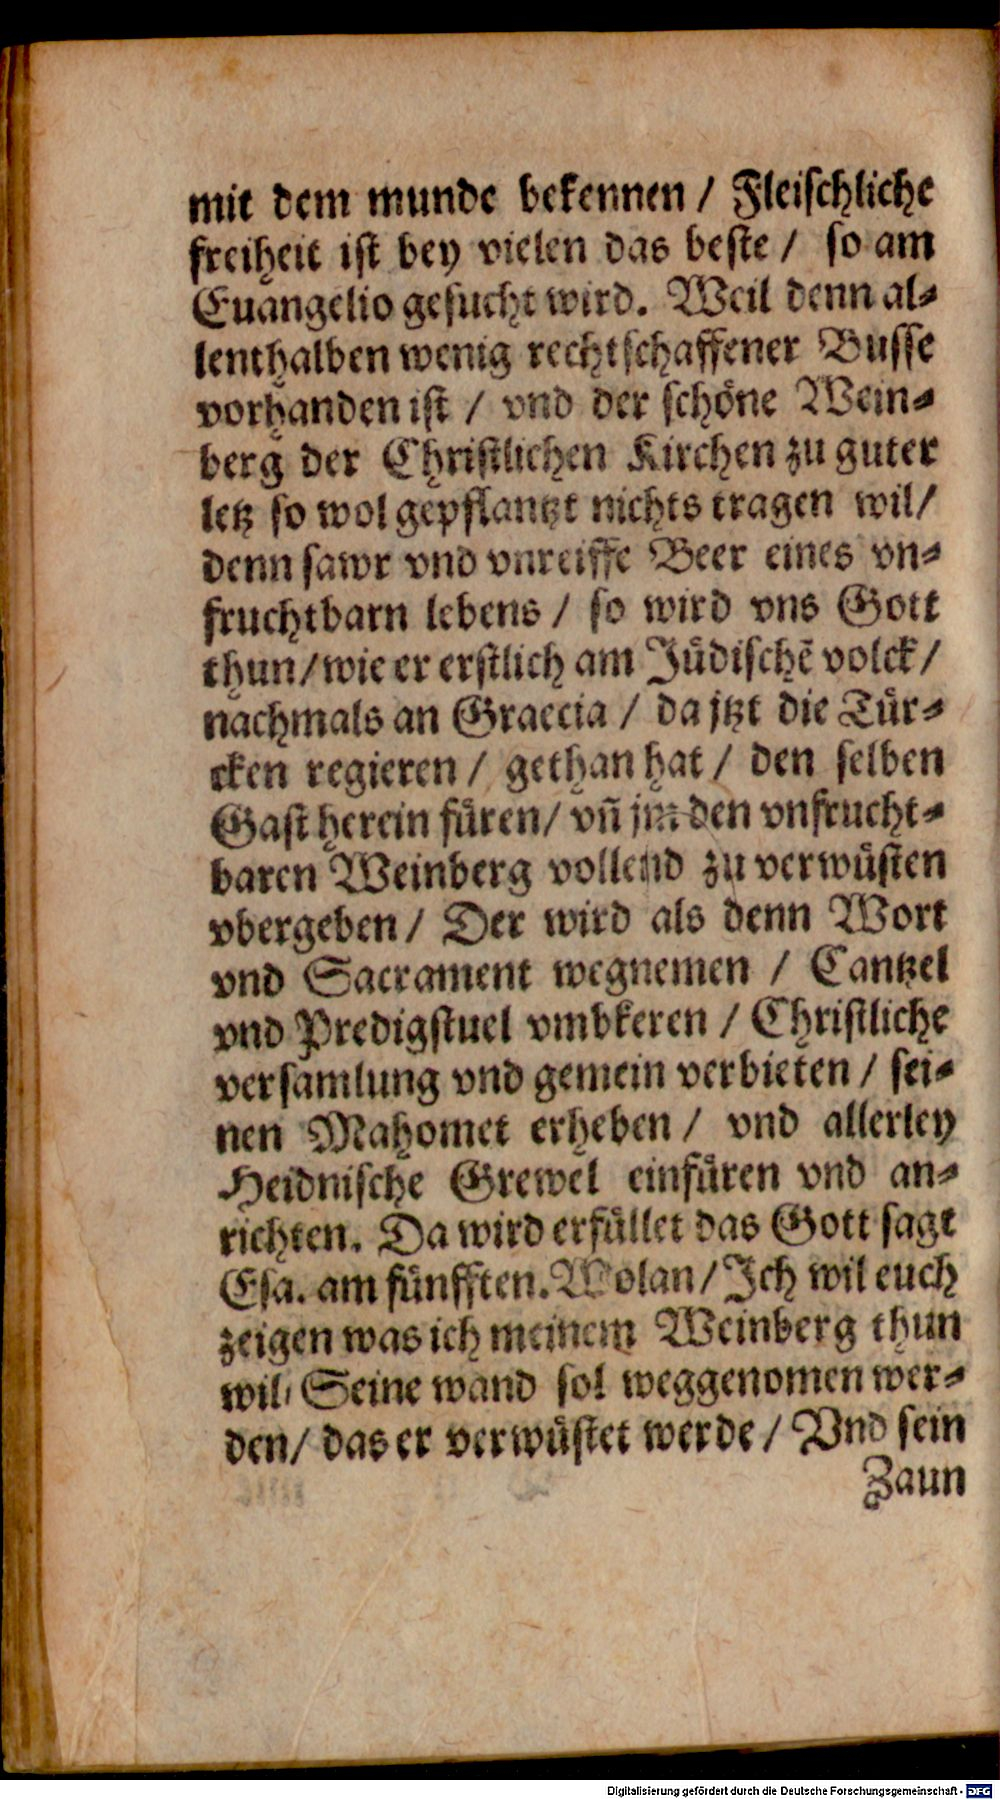 mit dem munde bekennen / Fleischliche
freiheit ist bey vielen das beste / so am
Euangelio gesucht wird. Weil denn al-
lenthalben wenig rechtschaffener Busse
vorhanden ist / vnd der schöne Wein-
berg der Christlichen Kirchen zu guter
letz so wol gepflantzt nichts tragen wil/
denn sawr vnd vnreiffe Beer eines vn-
fruchtbarn lebens / so wird vns Gott
thun/wie er erstlich am Jüdischẽ volck/
nachmals an Graecia / da jtzt die Tür-
cken regieren / gethan hat / den selben
Gast herein füren/ vñ jm den vnfrucht-
baren Weinberg vollend zu verwüsten
vbergeben / Der wird als denn Wort
vnd Sacrament wegnemen / Cantzel
vnd Predigstuel vmbkeren / Christliche
versamlung vnd gemein verbieten / sei-
nen Mahomet erheben / vnd allerley
Heidnische Grewel einfüren vnd an-
richten. Da wird erfüllet das Gott sagt
Esa. am fünfften. Wolan/ Jch wil euch
zeigen was ich meinem Weinberg thun
wil/ Seine wand sol weggenomen wer-
den/ das er verwüstet werde / Vnd sein
Zaun
Digitalisierung gefördert durch die Deutsche Forschungsgemeinschaft - DFG